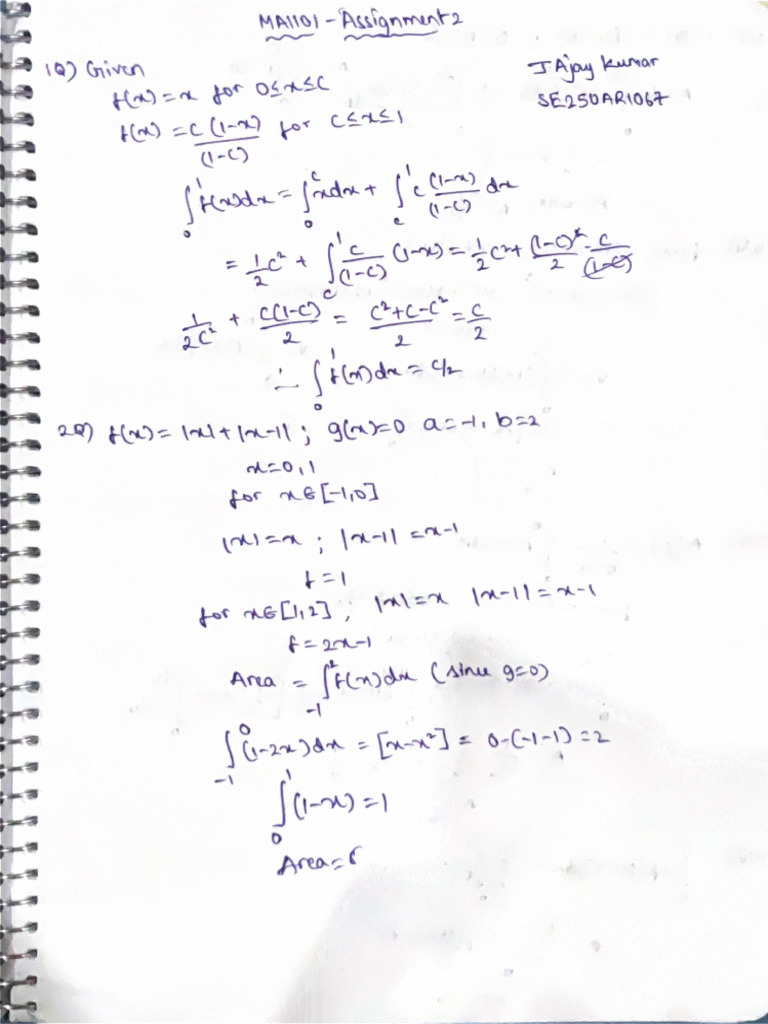 MA1101 - Assignment 2
J Ajay Kumar
SE25UARI067
1Q) Given
f(x) = x for 0≤x≤C
f(x) = C (1-x)/(1-C) for C≤x≤1
∫₀¹ f(x)dx = ∫₀^C xdx + ∫_C^1 C (1-x)/(1-C) dx
= 1/2 C² + ∫_C^1 C/(1-C) (1-x) = 1/2 C² + (1-C)²/2 . C/(1-C)
1/2C² + C(1-C)/2 = (C²+C-C²)/2 = C/2
∴ ∫₀¹ f(x)dx = C/2
2Q) f(x) = |x|+|x-1| ; g(x)=0 a=-1, b=2
x=0,1
for x∈[-1,0]
|x|=x ; |x-1| =x-1
f=1
for x∈[1,2] ; |x|=x |x-1|=x-1
f=2x-1
Area = ∫₋₁² f(x)dx (since g=0)
∫₋₁⁰ (1-2x)dx = [x-x²] = 0-(-1-1) =2
∫₀¹ (1-x) =1
Area=